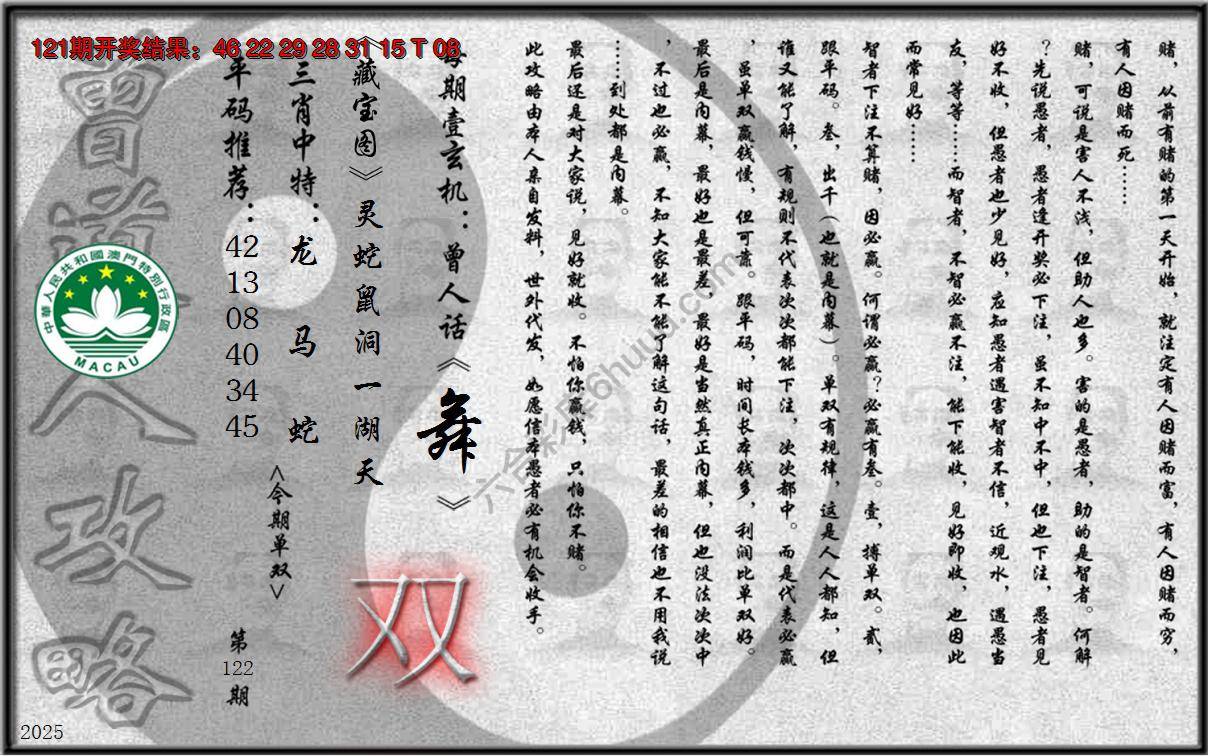 121期开奖结果：46 22 29 28 31 15 T 08
赌，从前有赌的第一天开始，就注定有人因赌而富，有人因赌而穷，
有人因赌而死……
赌，可说是害人不浅，但助人也多。害的是愚者，助的是智者。何解
？先说愚者，愚者逢开奖必下注，虽不知中不中，但也下注，愚者见
好不收，但愚者也少见好，应知愚者遇害智者不信，近观水，遇愚当
友，等等……而智者，不智必赢不注，能下能收，见好即收，也因此
而常见好……
智者下注不算赌，因必赢。何谓必赢？必赢有叁。壹，搏单双。贰，
跟平码。叁，出千（也就是内幕）。单双有规律，这是人人都知，但
谁又能了解，有规则不代表次次都能下注，次次都中。而是代表必赢
，虽单双赢钱慢，但可靠。跟平码，时间长本钱多，利润比单双好。
最后是内幕，最好也是最差，最好是当然真正内幕，但也没法次次中
，不过也必赢，不知大家能不能了解这句话，最差的相信也不用我说
……到处都是内幕。
最后还是对大家说，见好就收。不怕你赢钱，只怕你不赌。
此攻略由本人亲自发料，世外代发，如愿信本愚者必有机会收手。
每期壹玄机：曾人话《舞》
《藏宝图》灵蛇鼠洞一湖天
双
三肖中特：龙 马 蛇
<今期单双>
平码推荐：
42
13
08
40
34
45
第
122
期
曾道人攻略
中華人民共和國澳門特別行政區
MACAU
2025